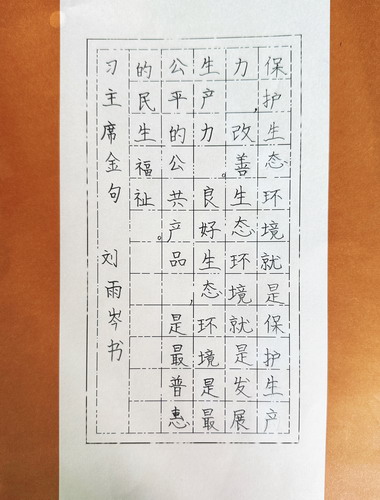 保护生态环境就是保护生产
力，改善生态环境就是发展
生产力。良好生态环境是最
公平的公共产品，是最普惠
的民生福祉。
习主席金句 刘雨岑书